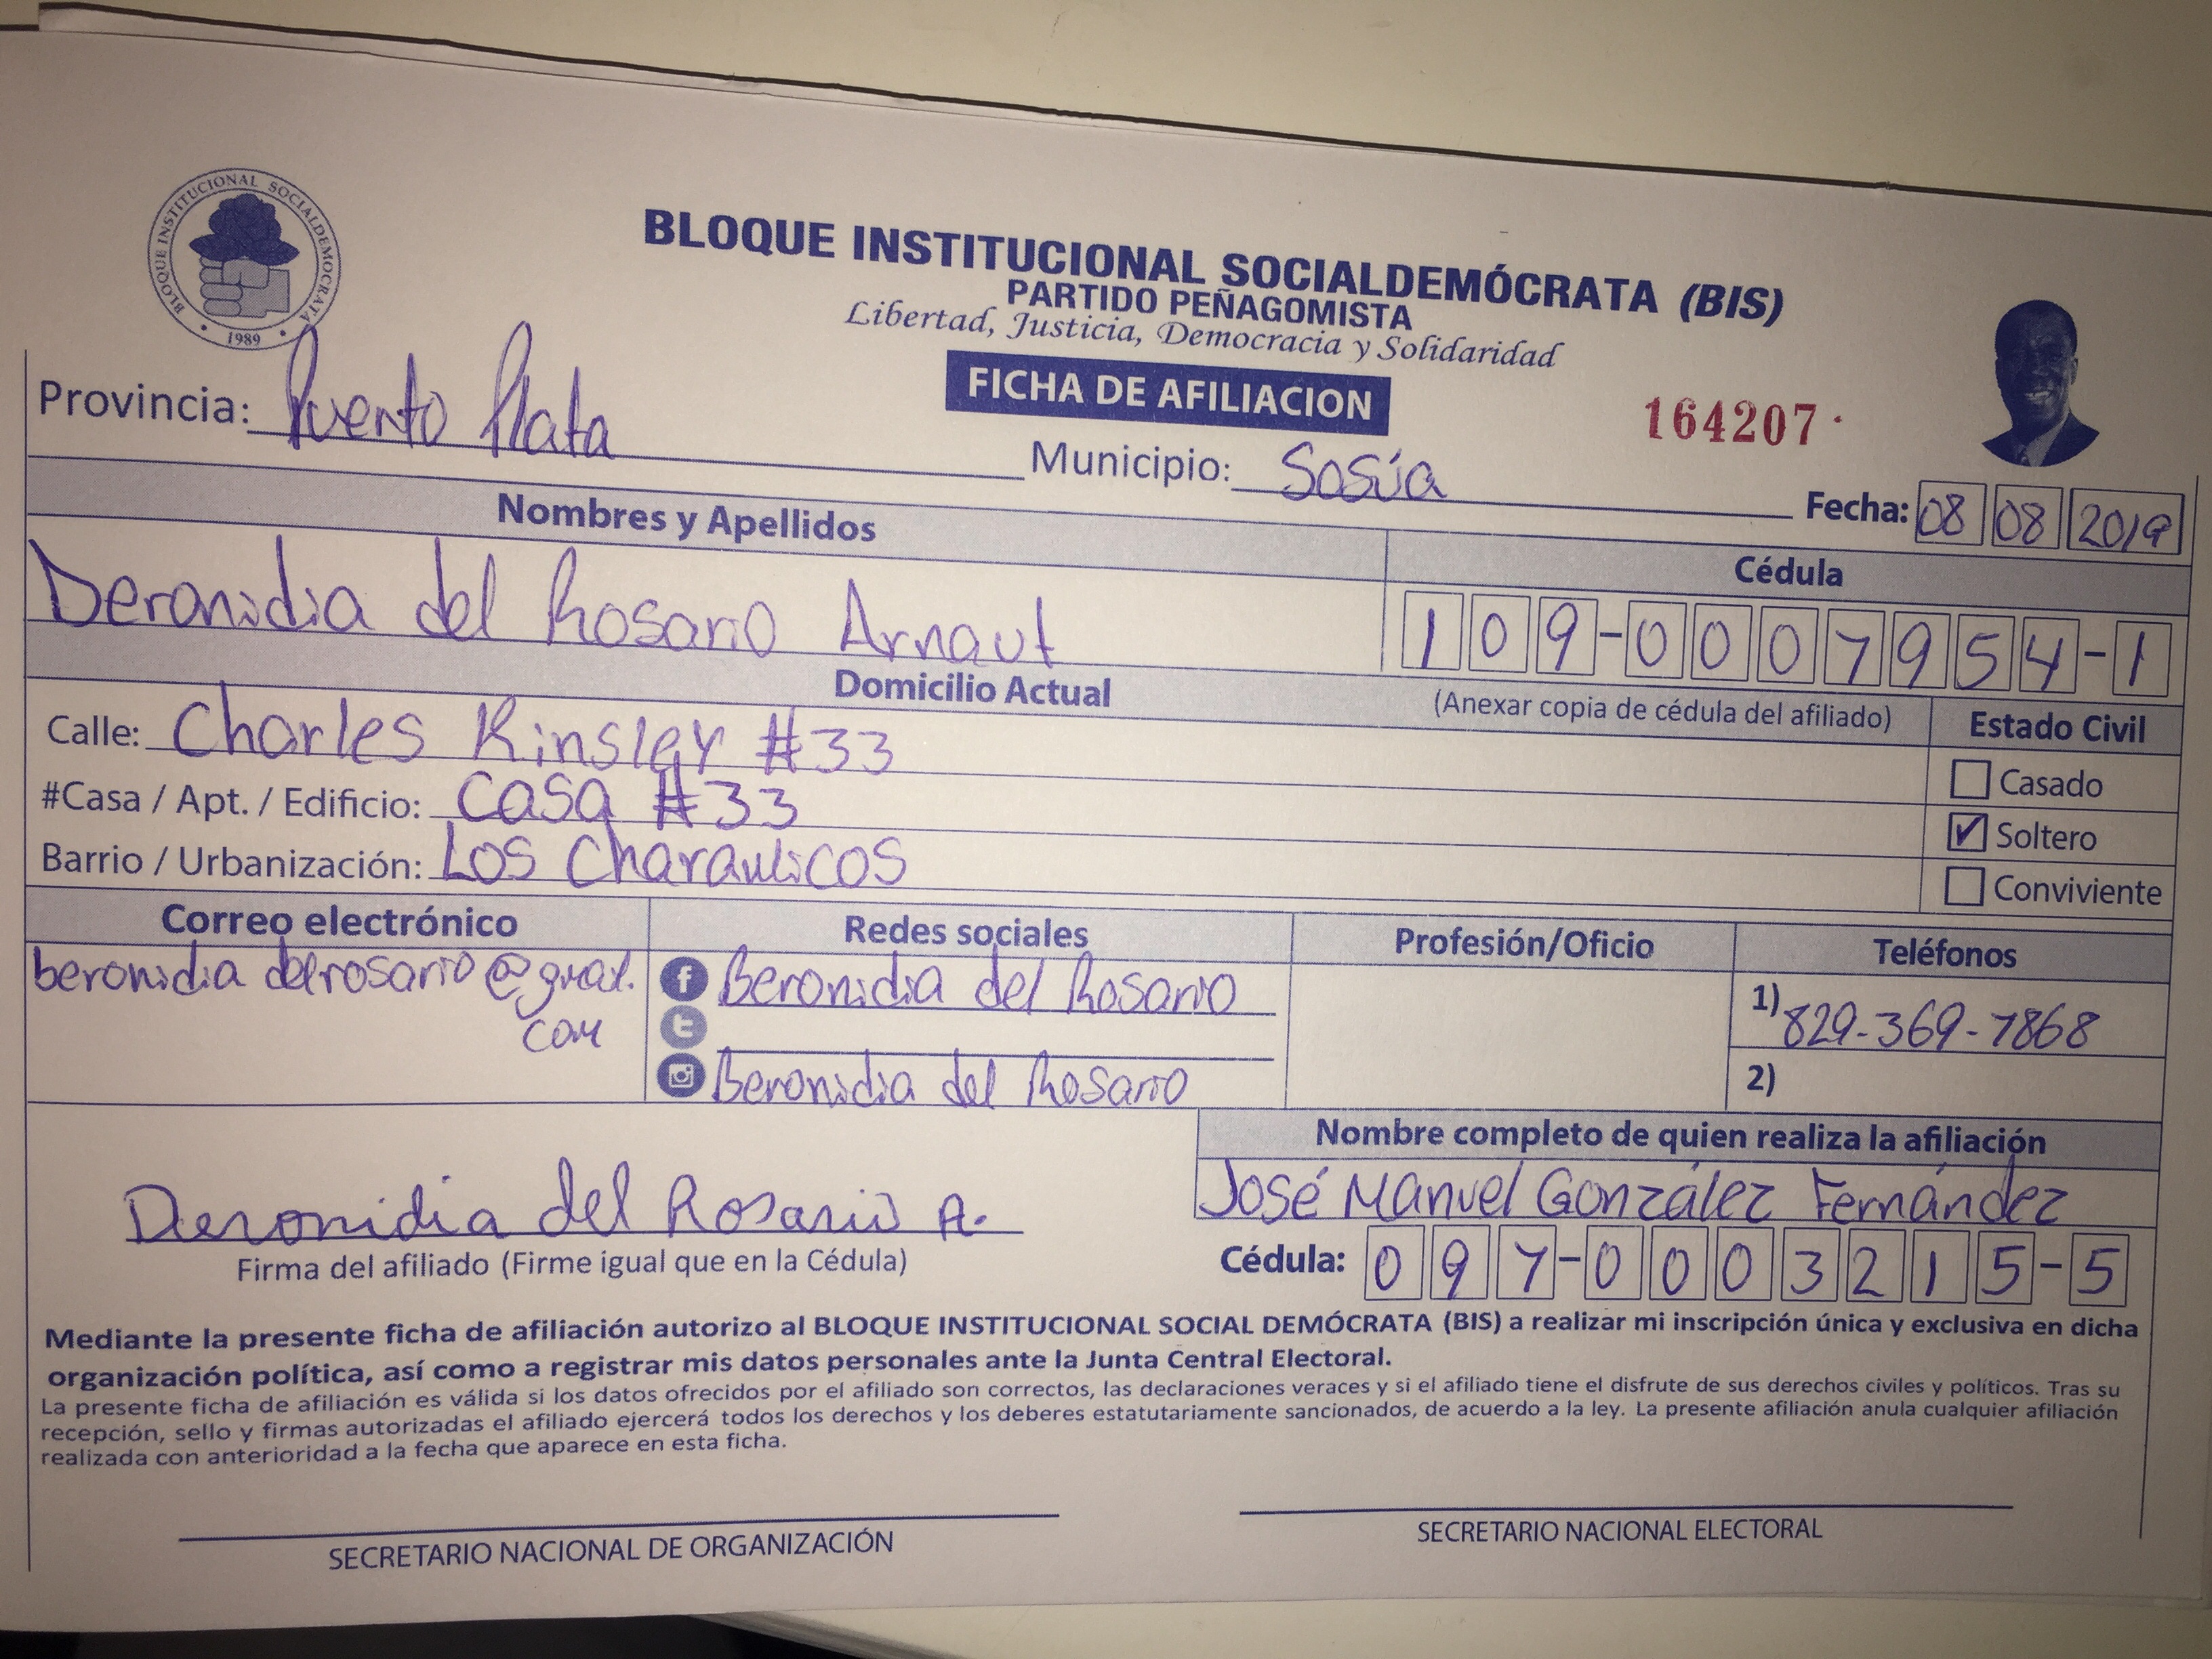 BLOQUE INSTITUCIONAL SOCIALDEMOCRATA
1989
BLOQUE INSTITUCIONAL SOCIALDEMÓCRATA (BIS)
PARTIDO PEÑAGOMISTA
Libertad, Justicia, Democracia y Solidaridad
FICHA DE AFILIACION
164207
Provincia: Puerto Plata
Municipio: Sosúa
Fecha: 08 08 2019
Nombres y Apellidos
Cédula
Deronidia del Rosario Arnaut
109-0007954-1
Domicilio Actual
(Anexar copia de cédula del afiliado)
Estado Civil
Calle: Charles Kinsley #33
Casado
#Casa / Apt. / Edificio: Casa #33
Soltero
Barrio / Urbanización: Los Charamicos
Conviviente
Correo electrónico
Redes sociales
Profesión/Oficio
Teléfonos
beronidia delrosario@gmail.
com
Beronidia del Rosario
Beronidia del Rosario
1) 829-369-7868
2)
Nombre completo de quien realiza la afiliación
José Manuel González Fernández
Deronidia del Rosario A.
Firma del afiliado (Firme igual que en la Cédula)
Cédula: 097-0003215-5
Mediante la presente ficha de afiliación autorizo al BLOQUE INSTITUCIONAL SOCIAL DEMÓCRATA (BIS) a realizar mi inscripción única y exclusiva en dicha
organización política, así como a registrar mis datos personales ante la Junta Central Electoral.
La presente ficha de afiliación es válida si los datos ofrecidos por el afiliado son correctos, las declaraciones veraces y si el afiliado tiene el disfrute de sus derechos civiles y políticos. Tras su
recepción, sello y firmas autorizadas el afiliado ejercerá todos los derechos y los deberes estatutariamente sancionados, de acuerdo a la ley. La presente afiliación anula cualquier afiliación
realizada con anterioridad a la fecha que aparece en esta ficha.
SECRETARIO NACIONAL DE ORGANIZACIÓN
SECRETARIO NACIONAL ELECTORAL